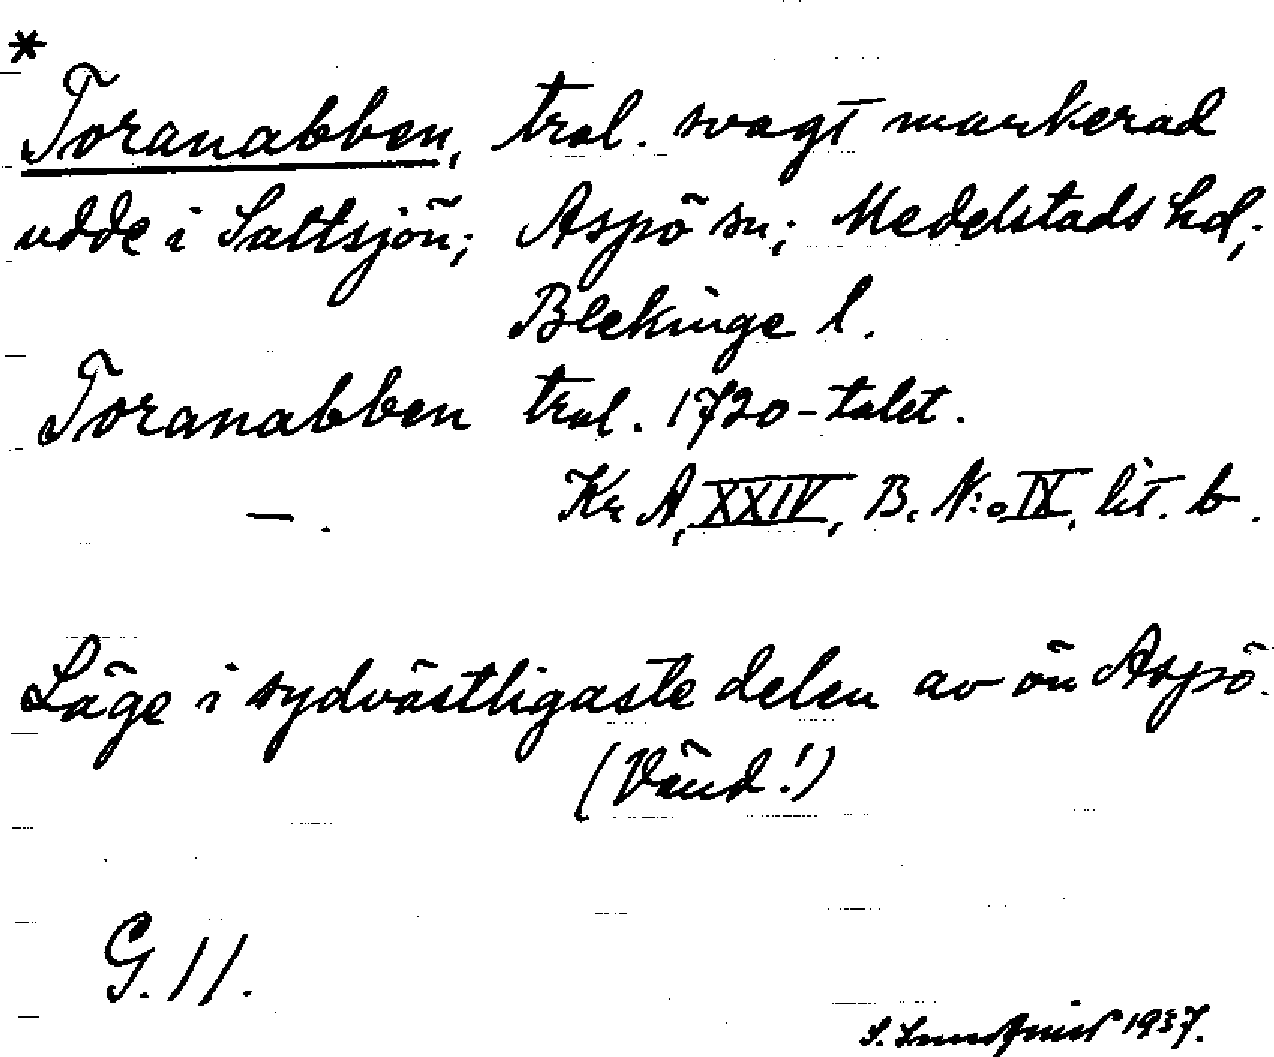 *
Toranabben, trol. svagt markerad
udde i Saltsjön; Aspö sn; Medelstads hd;
Blekinge l.
Toranabben trol. 1720-talet.
—. Kr. A, XXIV, B. N:o IX, lit. b.
Läge i sydvästligaste delen av ön Aspö.
(Vänd!)
G. 11.
S. Lundqvist 1937.